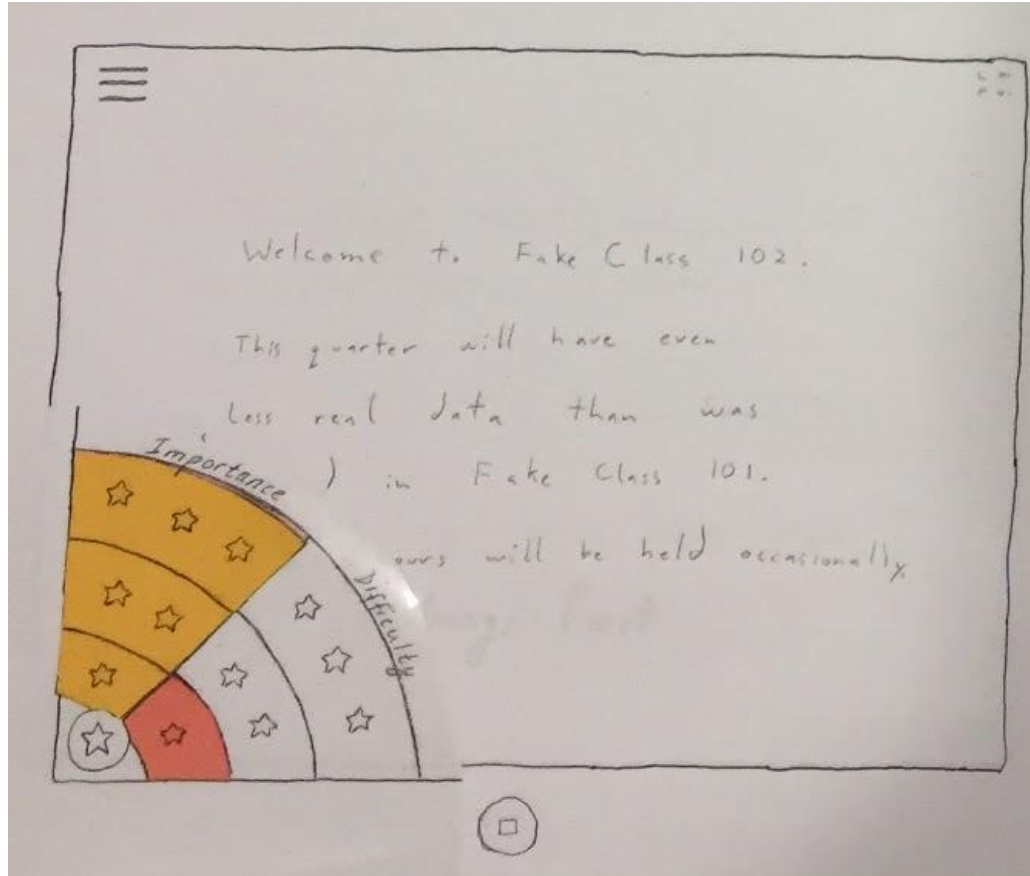 Welcome to Fake Class 102.
This quarter will have even
Less real data than was
in Fake Class 101.
ours will be held occasionally.
Importance
Difficulty